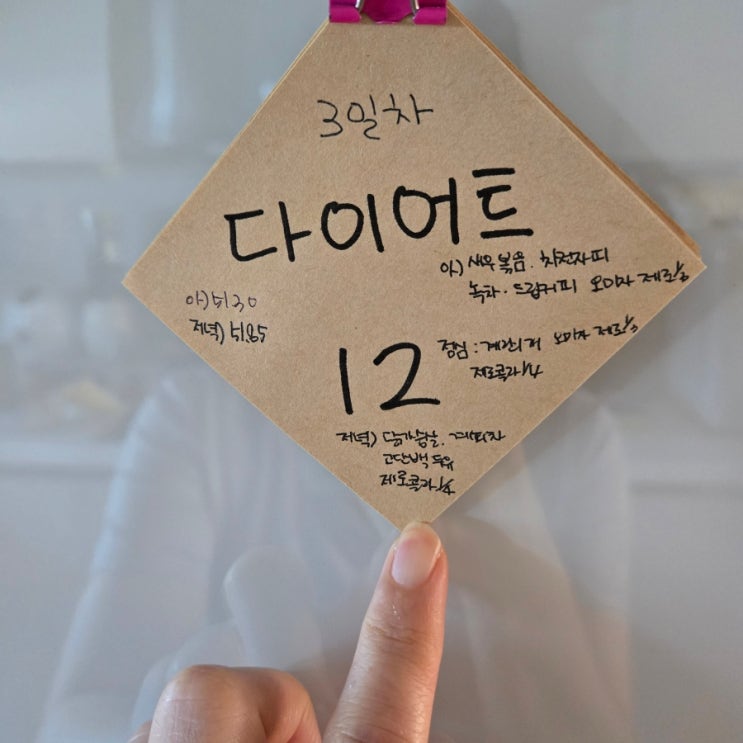 3일차
다이어트
아) 새우볶음. 차전자피
녹차. 드립커피 오미자 제로 1/2
아) 51.30
저녁) 51.85
점심 : 계란1개 오미자 제로 1/2
제로콜라 1/4
12
저녁) 닭가슴살.
고단백 두유
제로콜라 1/4